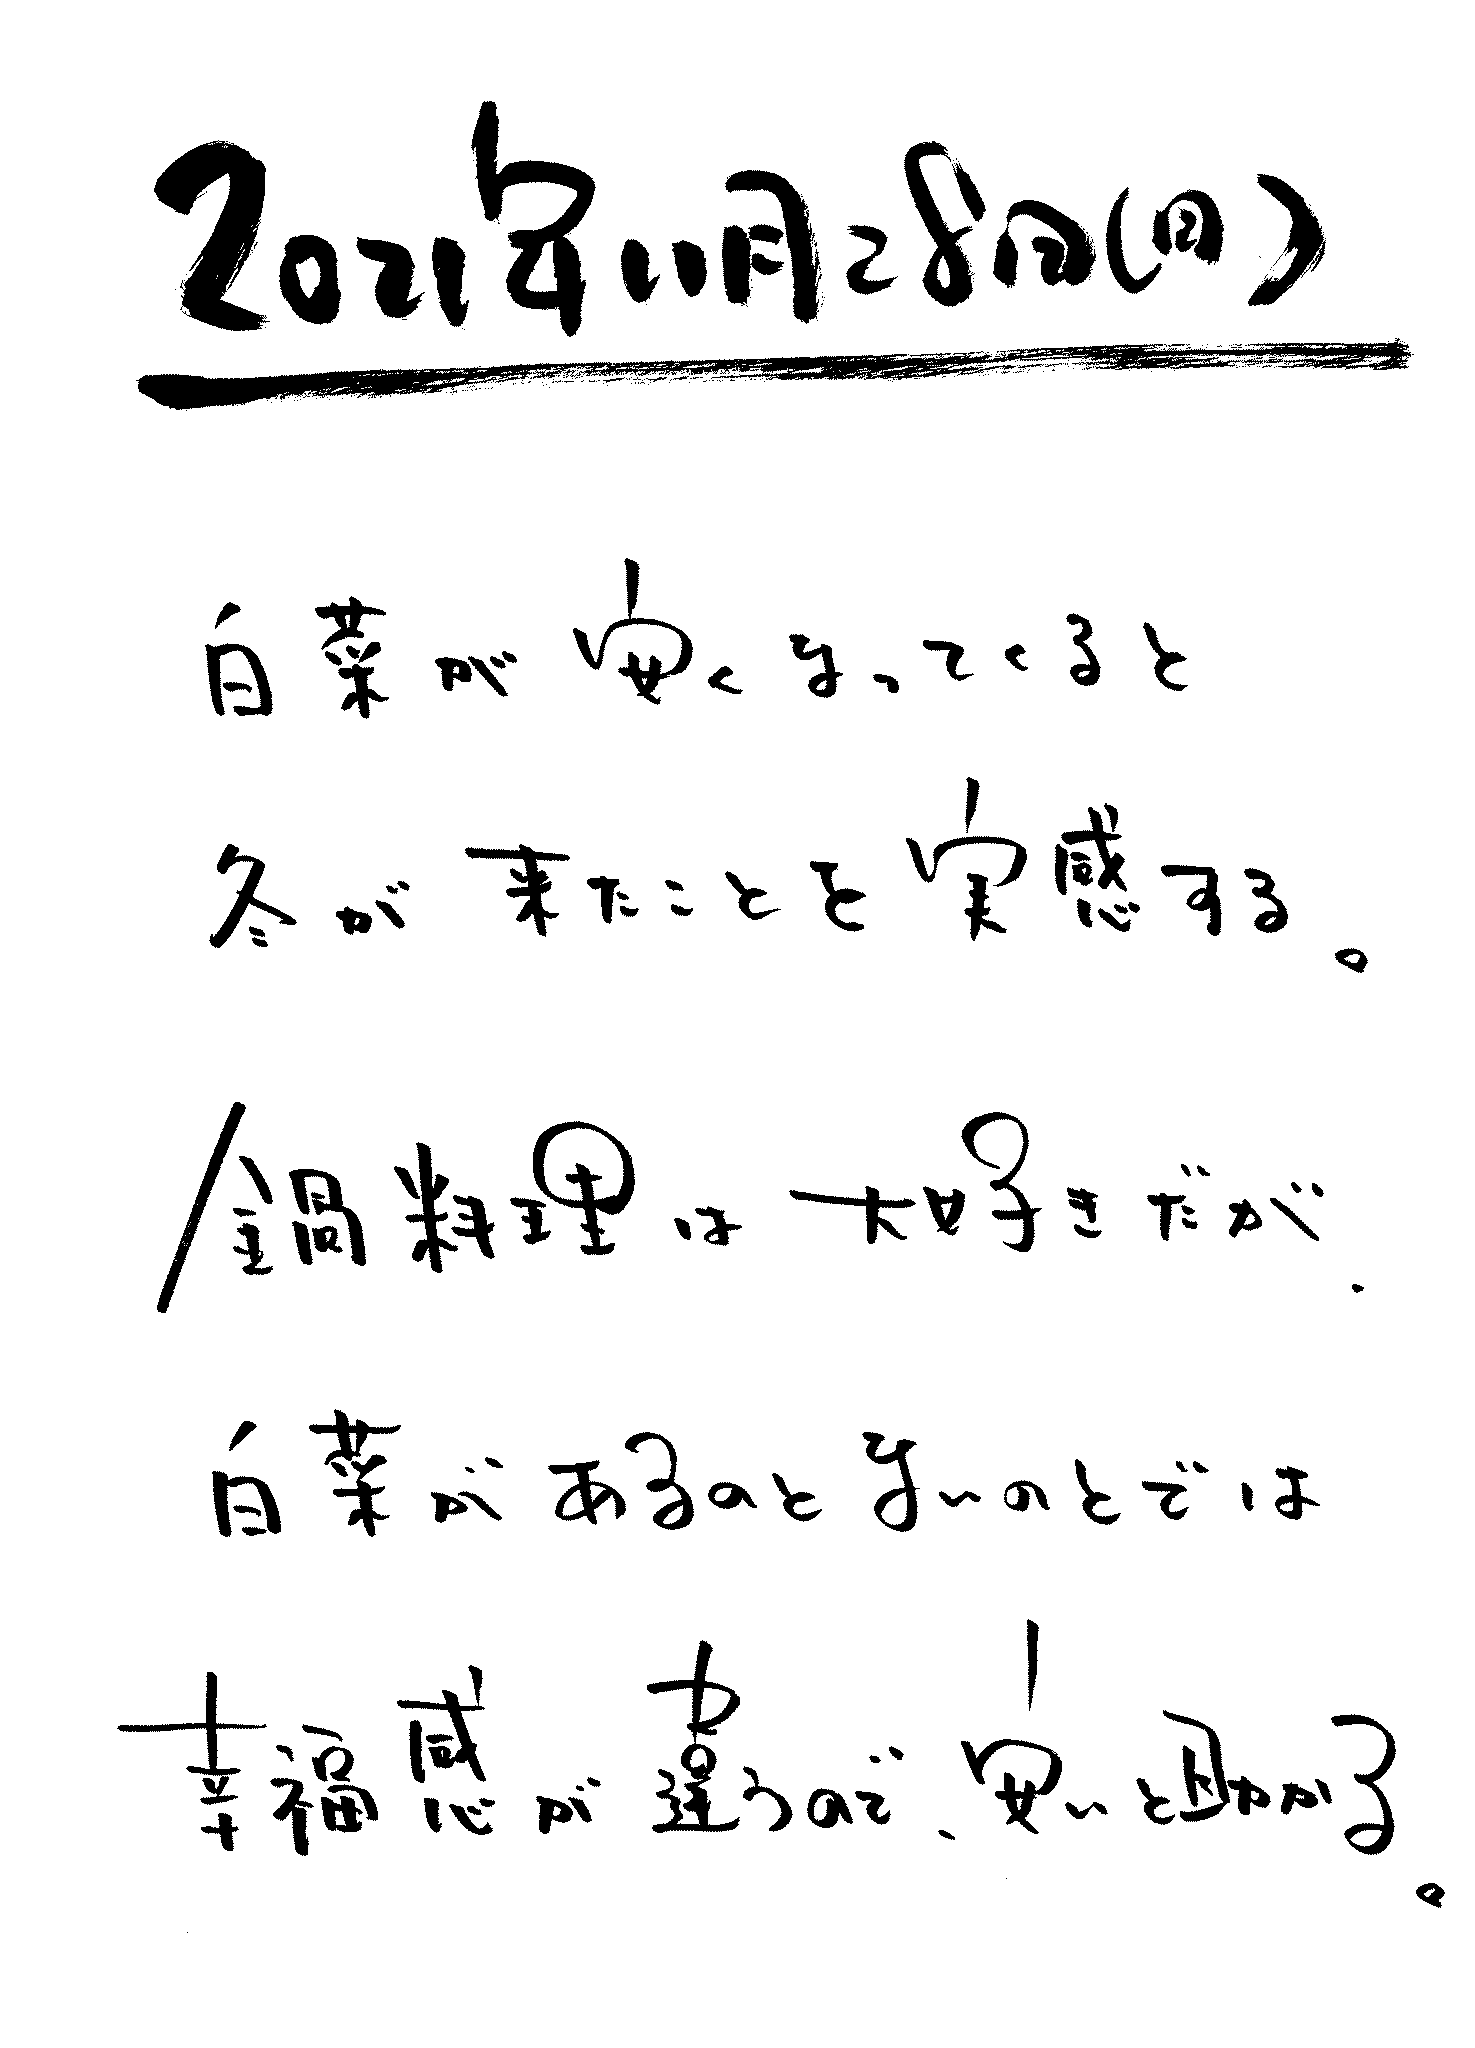 2021年11月28日(日)
白菜が安くなってくると
冬が来たことを実感する。
鍋料理は大好きだが、
白菜があるのとないのとでは
幸福感が違うので、安いと助かる。